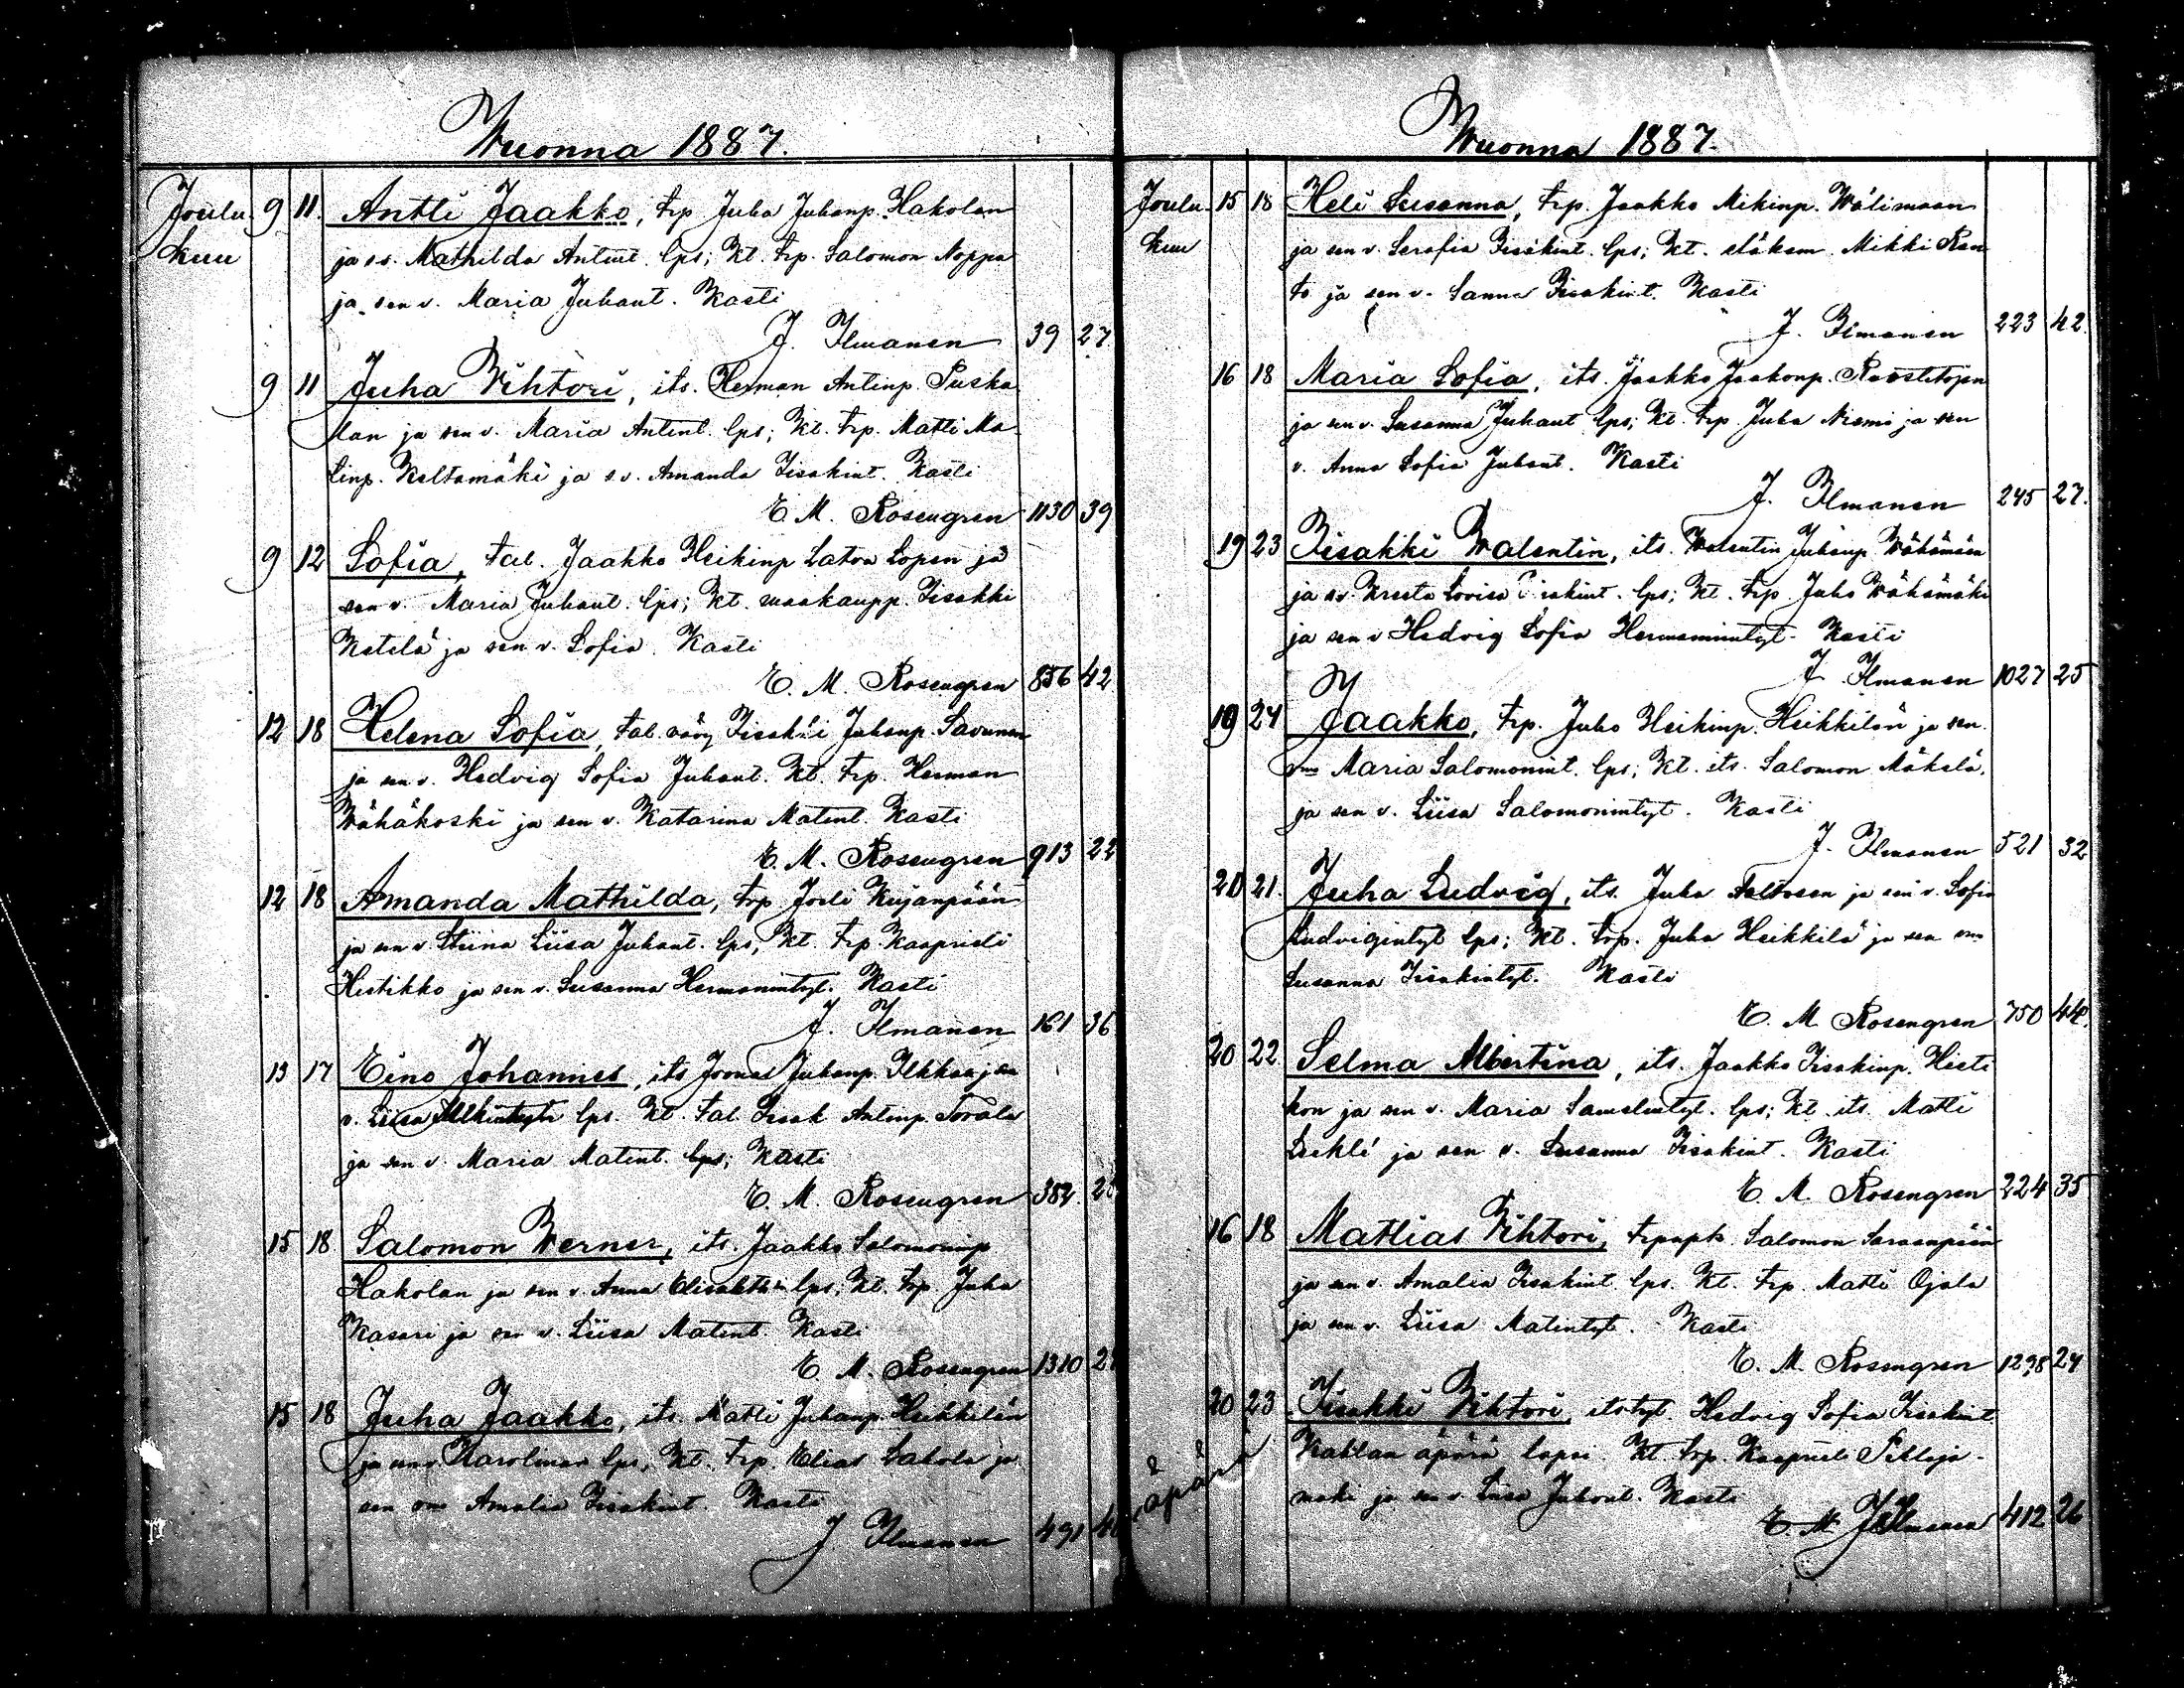 Wuonna 1887.
Joulu 9 11. Antti Jaakko, trp Juha Juhanp. Hakolan
kuu ja s.v. Mathilda Antint. lps; Kt. trp. Salomon Noppa
ja sen v. Maria Juhant. Kasti
J. Ilmanen 39 27
9 11 Juha Vihtori, its. Herman Antinp. Puska
lan ja sen v. Maria Antint. lps; Kt. trp. Matti Ma-
tinp. Keltamäki ja s.v. Amanda Iisakint. Kasti
E. M. Rosengren 1130 39
9 12 Sofia, tal. Jaakko Heikinp Latva Lopen ja
sen v. Maria Juhant. lps; Kt. maakaupp. Iisakki
Ketelä ja sen v. Sofia. Kasti
E. M. Rosengren 856 42
12 18 Helena Sofia, tal. Iisakki Juhanp. Savunen
ja sen v. Hedvig Sofia Juhant. Kt. trp. Herman
Wähäkoski ja sen v. Katarina Matint. Kasti
E. M. Rosengren 913 22
12 18 Amanda Mathilda, trp Joeli Kujanpään
ja sen v. Stiina Liisa Juhant. lps; Kt. trp. Kaaprieli
Histikko ja sen v. Susanna Hermanintyt. Kasti
J. Ilmanen 161 36
13 17 Eino Johannes, its Joonas Juhanp. Ilkkaa ja sen
v. Liisa lps. Kt. tal. Iisak Antinp. Torala
ja sen v. Maria Matint. lps; Kasti
E. M. Rosengren 382. 28
15 18 Salomon Werner, its. Jaakko Salomoninp
Hakolan ja sen v. Anna Elisabethin lps; Kt. trp. Juha
Kasari ja sen v. Liisa Matint. Kasti
E. M. Rosengren 1310 2
15 18 Juha Jaakko, its. Matti Juhanp. Heikkilän
ja sen v. Karolinan lps; Kt. trp. Elias Lahola ja
sen vmo Amalia Iisakint. Kasti
J Ilmanen 491 4
Wuonna 1887.
Joulu 15 18 Heli Susanna, trp. Jaakko Mikinp. Wälimaan
kuu ja sen v. Serafia Iisakint. lps; Kt. eläkem. Mikki Ran
to ja sen v. Sanna Iisakint. Kasti
J. Ilmanen 223 42.
16 18 Maria Sofia, its. Jaakko Jaakonp.
ja sen v. Susanna Juhant lps; Kt. trp. Juha Niemi ja sen
v. Anna Sofia Juhant. Kasti
J. Ilmanen 245 27.
19 23 Iisakki Walentin, its. Walentin Juhanp. Wähämäen
ja s.v. Kreeta Lovisa Iisakint. lps; Kt. trp. Juho Wähämäki
ja sen v Hedvig Sofia Hermanintyt. Kasti
J Ilmanen 1027 25
19 24 Jaakko, trp. Juho Heikinp. Heikkilän ja sen
vmo Maria Salomonint. lps; Kt. its. Salomon Mäkelä,
ja sen v. Liisa Salomonintyt. Kasti
J. Ilmanen 521 32
20 21. Juha Ludvig, its. Juha ja sen v. Sofia
Ludvigintyt lps; Kt. trp. Juha Heikkilä ja sen vmo
Susanna Iisakintyt. Kasti
E. M. Rosengren 750 44.
20 22 Selma Albertina, its. Jaakko Iisakinp. Histi
kon ja sen v. Maria Samelintyt. lps; Kt. its. Matti
ja sen v. Susanna Iisakint. Kasti
E. M. Rosengren 224 35
16 18 Mattias Vihtori, Salomon Saraanpään
ja sen v. Amalia Iisakint lps. Kt. trp. Matti Ojala
ja sen v. Liisa Matintyt. Kasti
E. M. Rosengren 1298 24
20 23 Iisakki Vihtori itstyt. Hedvig Sofia Iisakint
äpärä Kallaa äpärä lapsi. Kt. trp. Kaaprieli Pihlaja-
mäki ja sen v. Liisa Juhant. Kasti
E. M. J Ilmanen 412 26